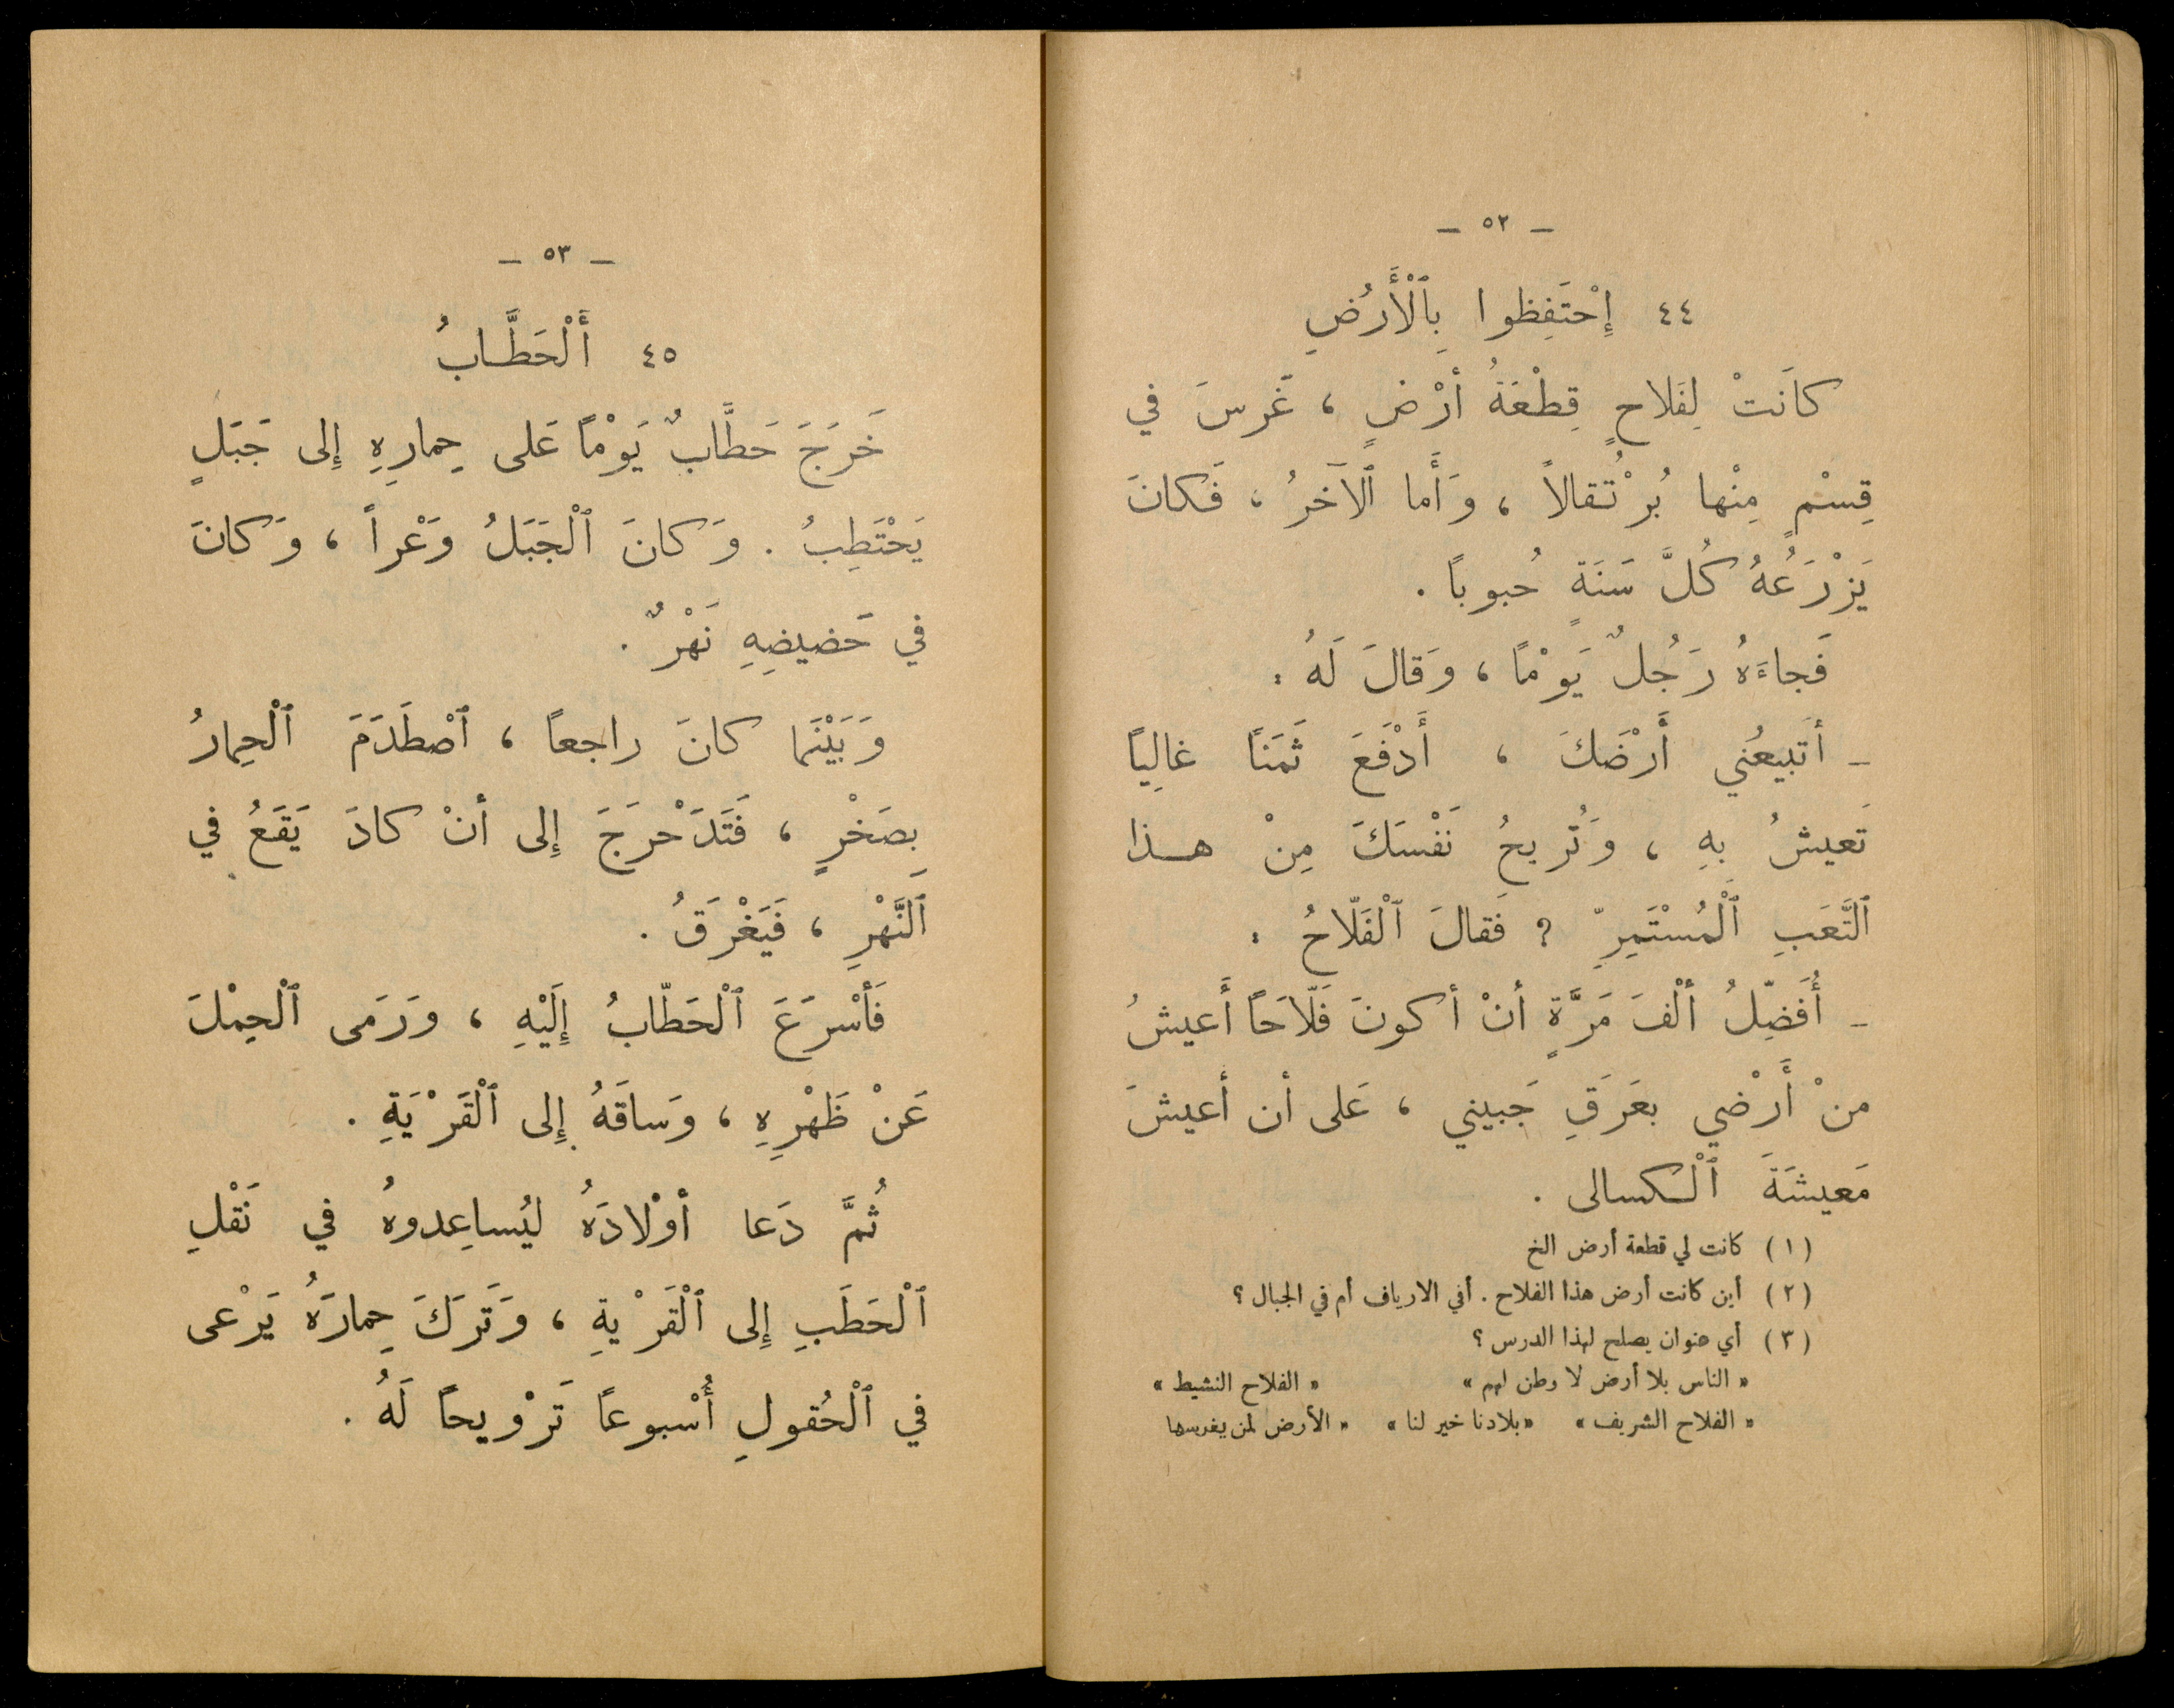 — ٥٢ —
٤٤ إِحْتَفِظوا بِٱلْأَرْضِ
كانَتْ لِفَلاحٍ قِطْعَةُ أرْضٍ ، غَرسَ في
قِسْمٍ مِنْها بُرْتُقالاً ، وَأَما ٱلآخَرُ ، فَكانَ
يَزْرَعُهُ كُلَّ سَنَةٍ حُبوباً .
فَجاءَهُ رَجُلٌ يَوْمًا ، وَقالَ لَهُ :
ـ أتَبيعُني أَرْضَكَ ، أَدْفَعَ ثَمَنًا غالِيًا
تَعيشُ بهِ ، وَتُريحُ نَفْسَكَ مِنْ هـذا
ٱلتَّعَبِ ٱلْمُسْتَمِرِّ ؟ فَقالَ ٱلْفَلّاحُ :
ـ أُفَضِّلُ ألْفَ مَرَّةٍ أنْ أكونَ فَلّاحًا أَعيشُ
منْ أَرْضي بعَرَقِ جَبيني ، عَلى أن أعيشَ
مَعيشَةَ ٱلْكسالى .
(١) كانت لي قطعة أرض الخ
(٢) أين كانت أرض هذا الفلاح . أفي الارياف أم في الجبال ؟
(٣) أي عنوان يصلح لهذا الدرس ؟
« الناس بلا أرض لا وطن لهم » « الفلاح النشيط »
« الفلاح الشريف » «بلادنا خير لنا » « الأرض لمن يغرسها
— ٥٣ —
٤٥ أَلْحَطَّـابُ
خَرَجَ حَطَّابٌ يَوْمًا عَلى حِمارِهِ إِلى جَبَلٍ
يَحْتَطِبُ . وَكانَ ٱلْجَبَلُ وَعْراً ، وَكانَ
في حَضيضِهِ نَهْرٌ .
وَبَيْنَما كانَ راجعاً ، ٱصْطَدَمَ ٱلْحِمارُ
بِصَخْرٍ ، فَتَدَحْرَجَ إِلى أنْ كادَ يَقَعُ في
ٱلنَّهْرِ ، فَيَغْرَقُ .
فَأسْرَعَ ٱلْحَطّابُ إِلَيْهِ ، وَرَمى ٱلْحِمْلَ
عَنْ ظَهْرِهِ ، وَساقَهُ إِلى ٱلْقَرْيَةِ .
ثُمَّ دَعا أوْلادَهُ ليُساعِدوهُ في نَقْلِ
ٱلْحَطَبِ إِلى ٱلْقَرْيةِ ، وَتَرَكَ حِمارَهُ يَرْعى
في ٱلْحُقولِ أُسْبوعاً تَرْويحاً لَهُ .